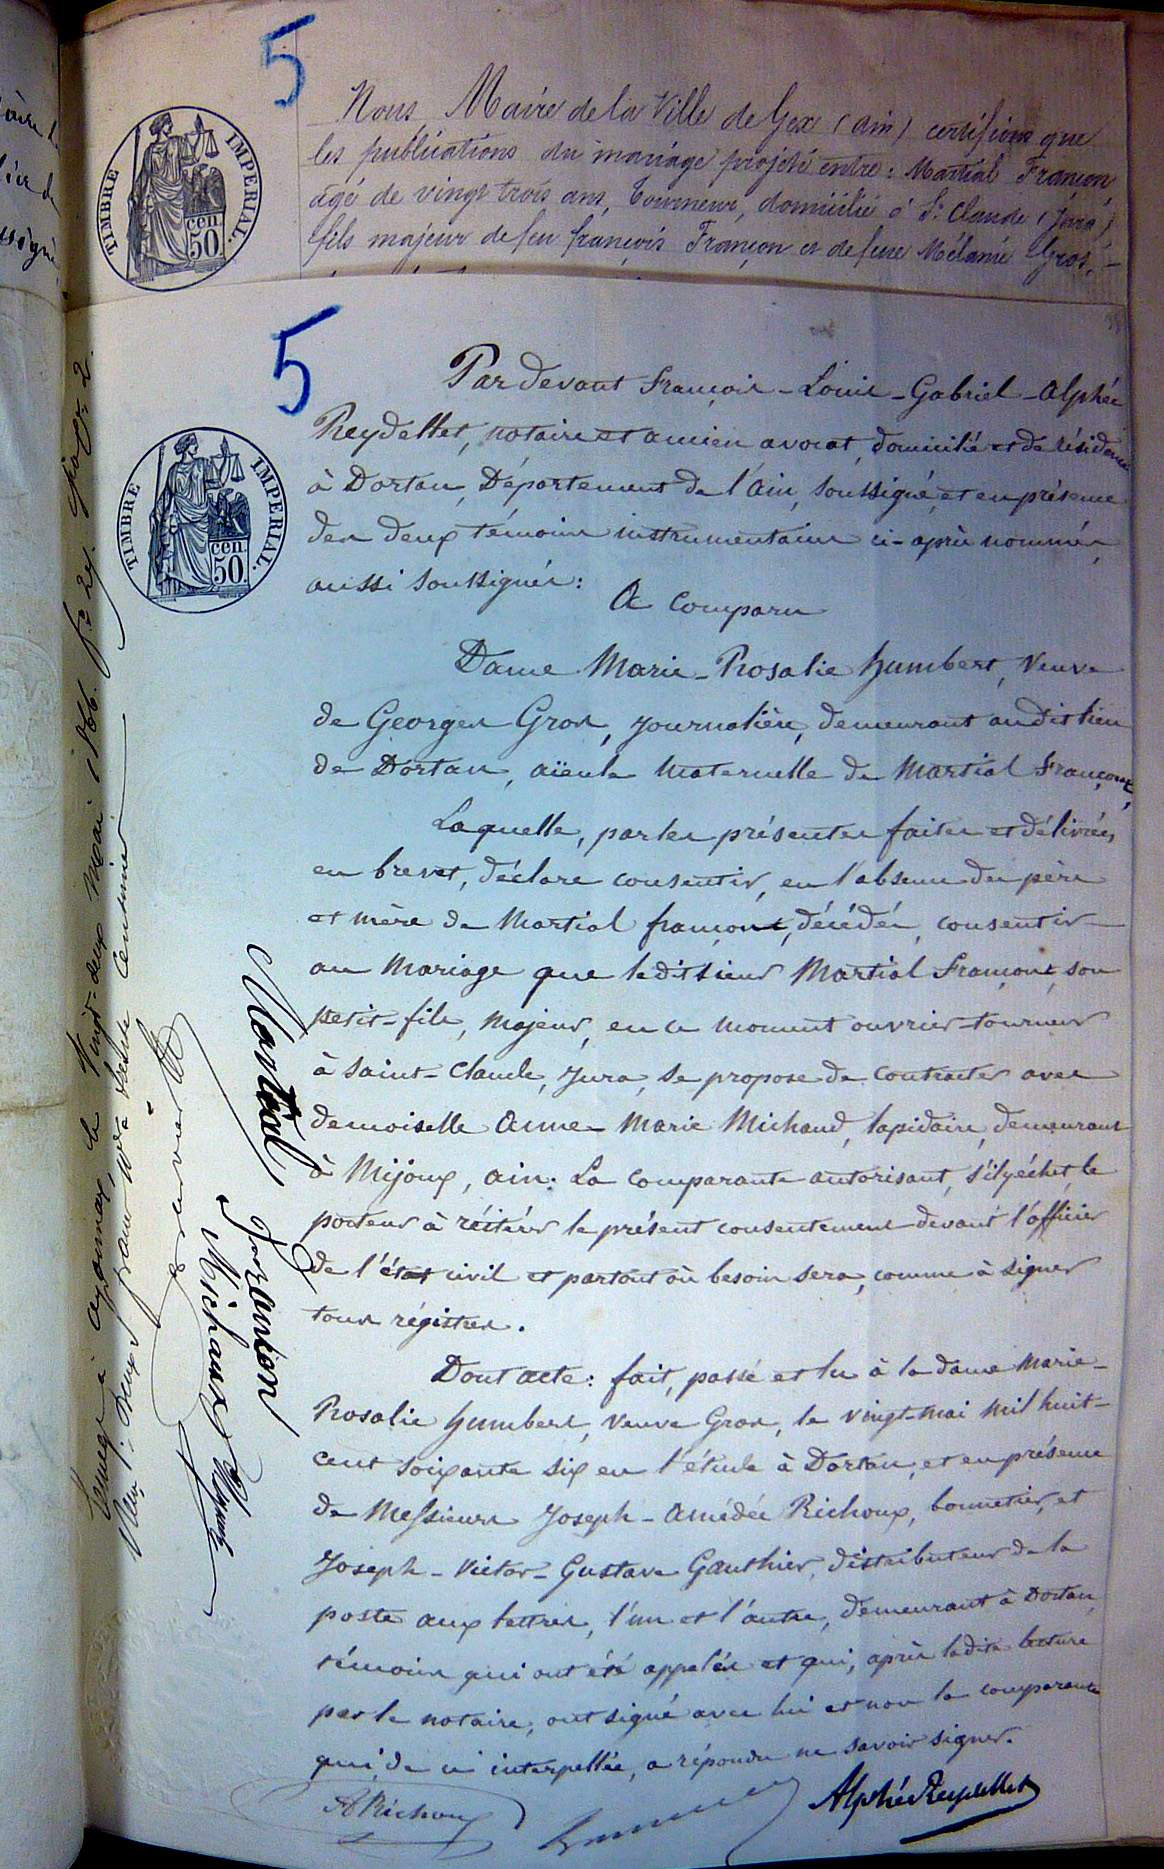 5
Nous, Maire de la Ville de Gex (ain) certifions que
les publications du mariage projeté entre : Martial Françon
agé de vingt trois ans, Tourneur, domicilié à St Claude (Jura)
fils majeur de feu françois Françon et de feue Mélanie Gros,
TIMBRE IMPERIAL.
cen 50
5
Par devant François-Louis-Gabriel-Alphée
Reydellet, notaire et ancien avocat, domicilié et de résidence
à Dortan, Département de l'Ain, soussigné, et en présence
des deux témoins instrumentaires ci-après nommés,
aussi soussignés :
A Comparu
TIMBRE IMPERIAL.
cen. 50.
Dame Marie-Rosalie Humbert, Veuve
de Georges Gros, journalière, demeurant audit lieu
de Dortan, aïeule maternelle de Martial Françont,
Laquelle, par les présentes faites et délivrées
en brevet, déclare consentir, en l'absence des père
et mère de Martial françont, décédés, consentir
au mariage que ledit sieur Martial Françont, son
petit-fils, majeur, en ce moment ouvrier-tourneur
à Saint-Claude, Jura, se propose de contracter avec
demoiselle Anne-Marie Michaud, lapidaire, demeurant
à Mijoux, ain. La comparante autorisant, s'il y échet, le
porteur à réitérer le présent consentement devant l'officier
de l'état civil et partout où besoin sera, comme à signer
tous régistres.
Dont acte : fait, passé et lu à la dame Marie-
Rosalie Humbert, veuve Gros, le vingt-mai mil huit-
cent soixante six en l'étude à Dortan, et en présence
de Messieurs Joseph-Amédée Richoux, bonnetier, et
Joseph-Victor-Gustave Gauthier, distributeur de la
poste aux lettres, l'un et l'autre, demeurant à Dortan,
témoins qui ont été appelés et qui, après ladite lecture
par le notaire, ont signé avec lui et non la comparante
qui, de ce interpellée, a répondu ne savoir signer.
A Richoux
Alphée Reydellet
à oyonnax, le Vingt-deux Mai 1866. fo 29.
deux francs
centimes
Martial Francion
Michaux